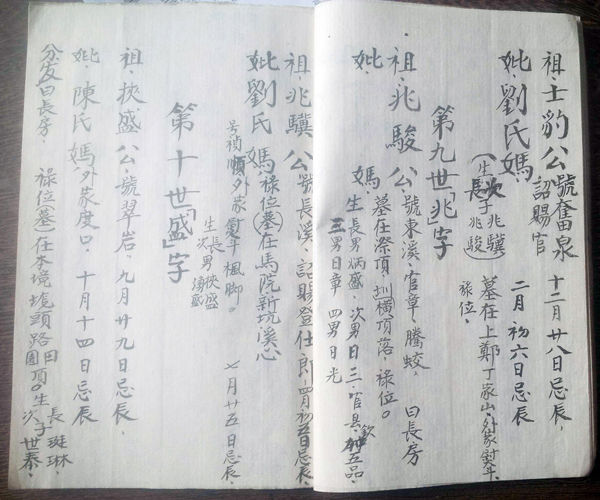 祖士豹公號奮泉 十二月廿八日忌辰，
詔賜官
妣劉氏媽 二月初六日忌辰
生長子兆駿
次子兆驥
墓在上鄭丁家山，外家墩斗，
祿位，
第九世「兆」字
祖兆駿公號東溪，官章，騰蛟， 曰長房
妣 媽墓在漈頂圳橫頂落，祿位。
生長男炳盛，次男日三，官縣，欽加五品，
三男日章 四男日光
祖兆驥公號長溪，詔賜登仕郎，四月初五日忌辰
妣劉氏媽，祿位墓在馬院新坑溪心
号禎順外家墩斗楓脚。 七月廿五日忌辰，
生長男挾盛
次男湧盛
第十世「盛」字
祖挾盛公號翠岩，九月廿九日忌辰，
妣陳氏媽外家度口，十月十四日忌辰
分友曰長房， 祿位墓在本境墘頭路田園頂。生長子斑琳，
次子世泰，